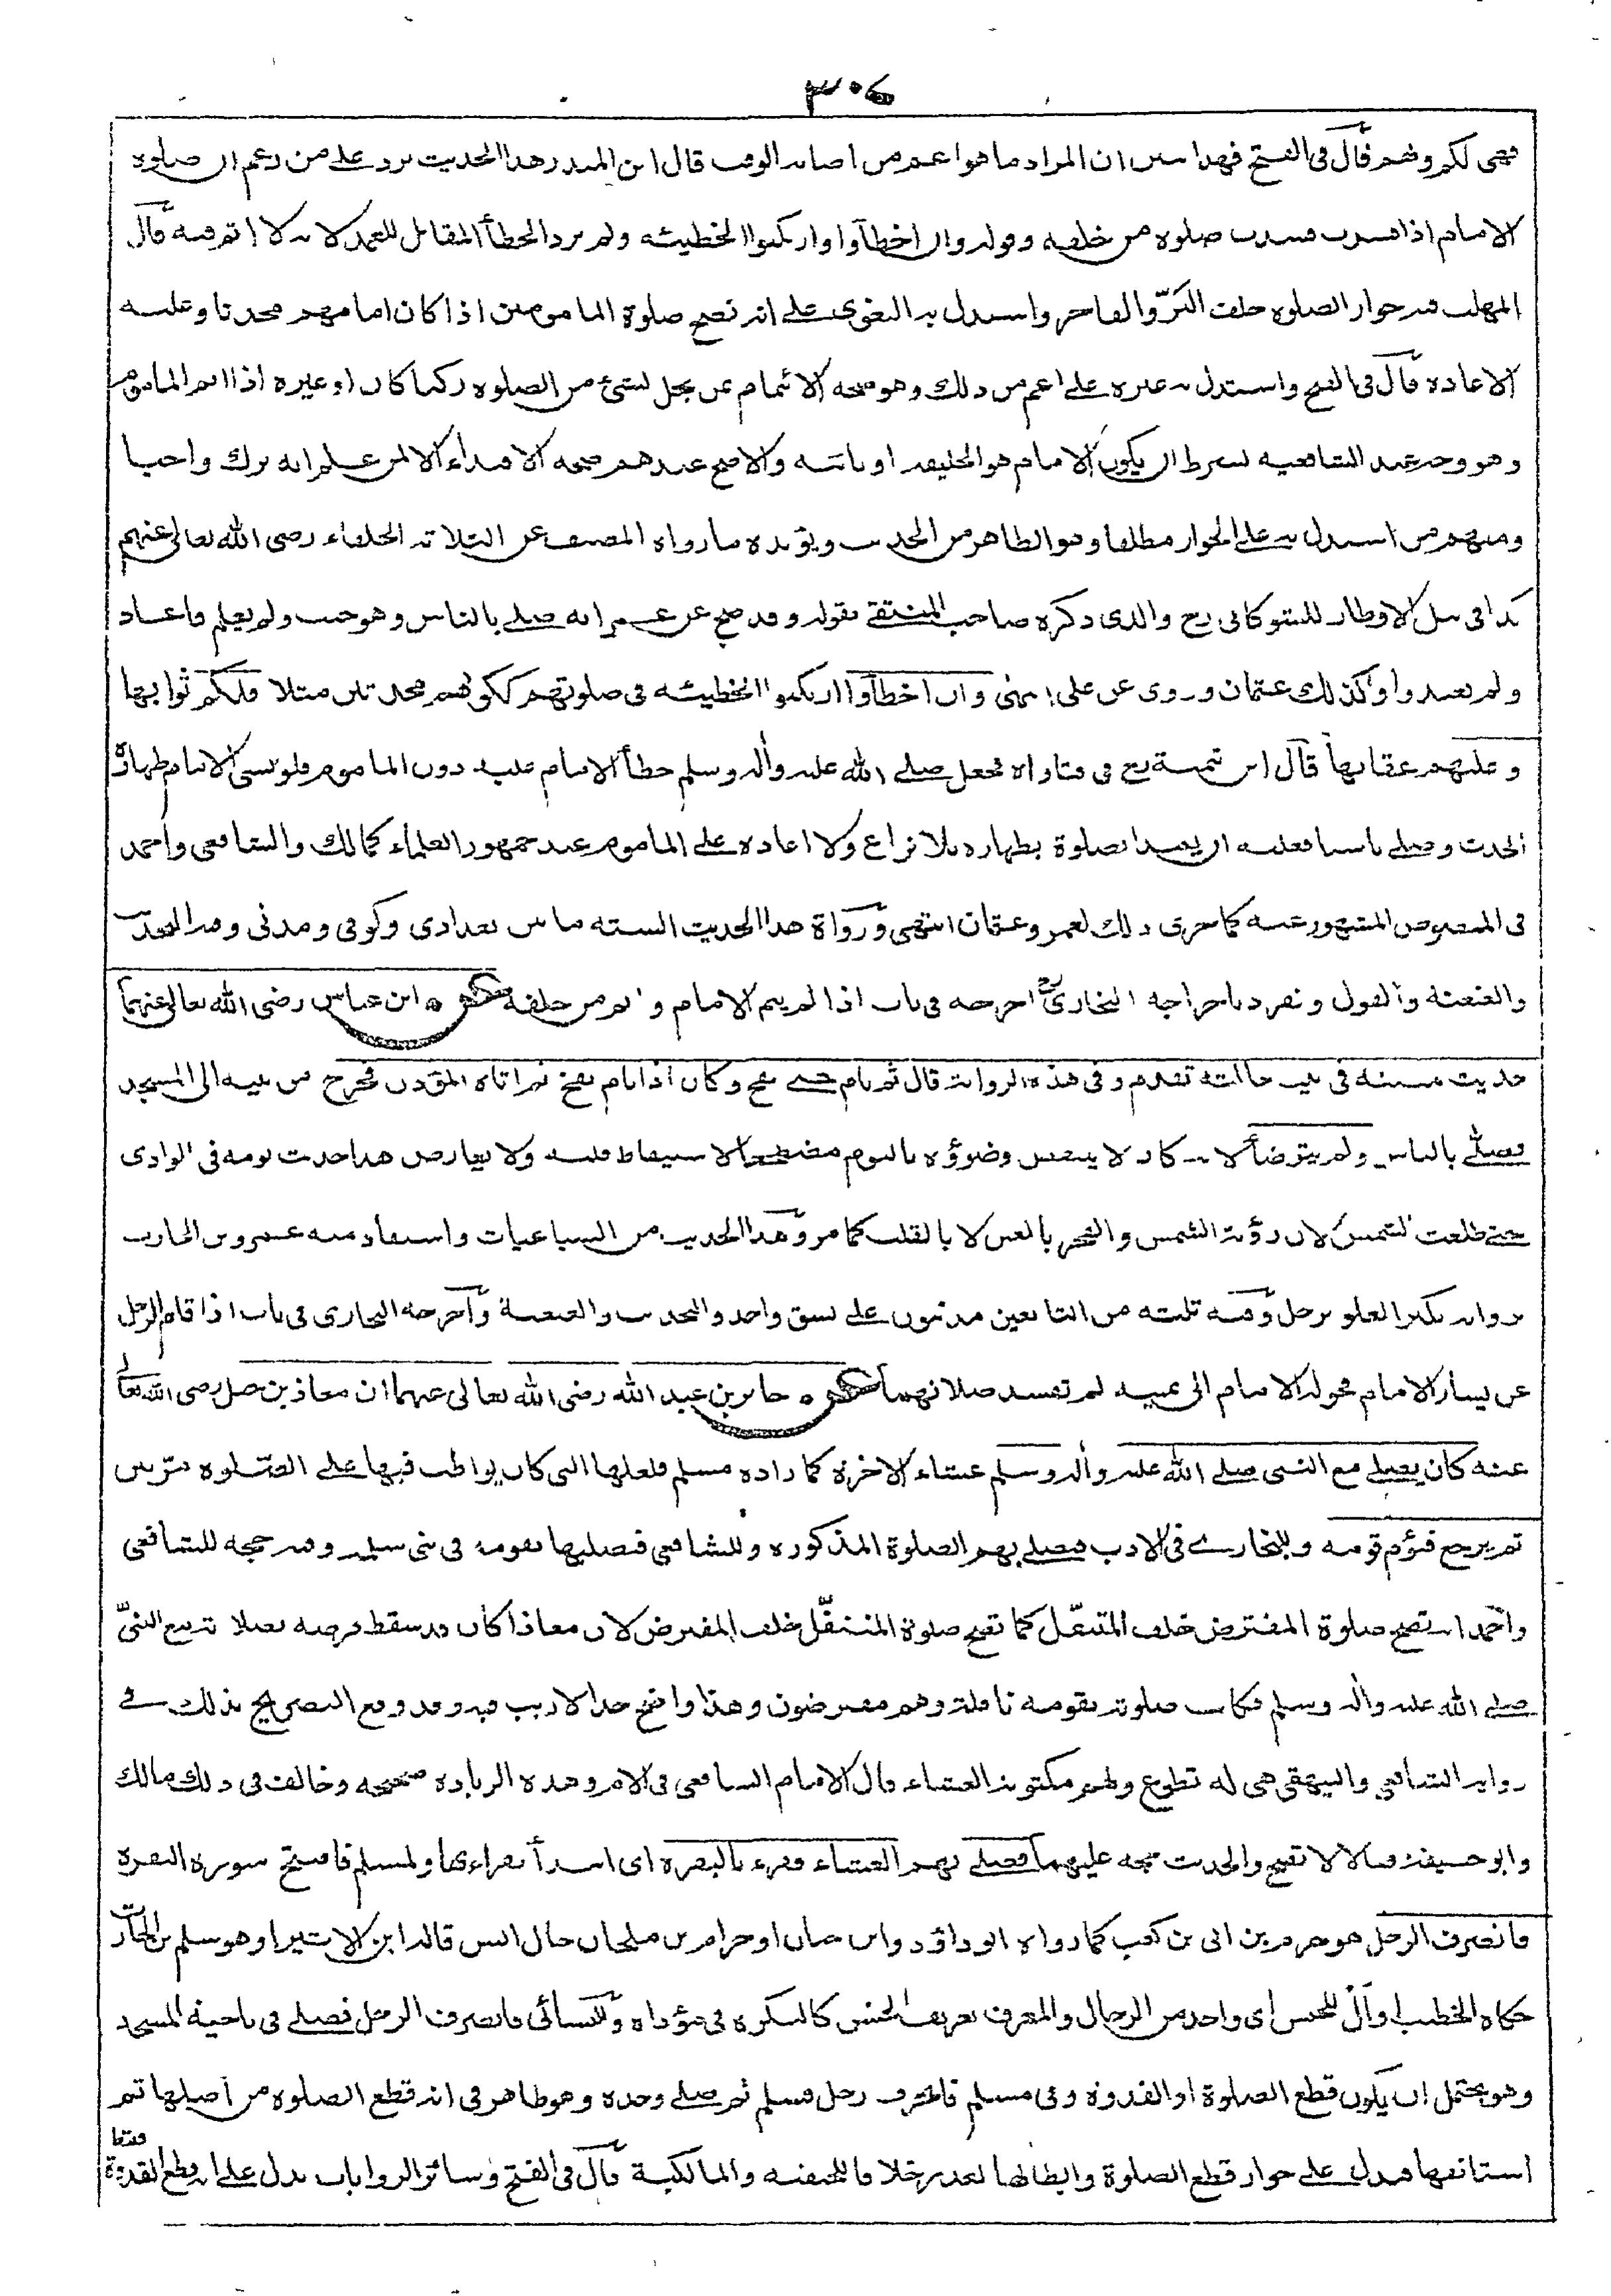 ٣٠٤
فهى لكم ولهم قال فى الفتح فهذا يبين ان المراد ما هو اعم من اصابة الوقت قال ابن المنذر هذا الحديث يرد على من زعم ان صلوة
الامام اذا فسدت فسدت صلوة من خلفه وقوله وان اخطأوا اى ارتكبوا الخطيئة ولم يرد الخطأ المقابل للعمد لانه لا اثم فيه قال
المهلب فيه جواز الصلوة خلف البر والفاجر واستدل به البغوى على انه تصح صلوة المامومين اذا كان امامهم محدثا وعليه
الاعادة قال فى الفتح واستدل به غيره على اعم من ذلك وهو صحة الائتمام بمن يخل بشئ من الصلوة ركنا كان او غيره اذا اتم الماموم
وهو وجه عند الشافعية بشرط ان يكون الامام هو الخليفة او نائبه والاصح عندهم صحة الاقتداء الا لمن علم انه ترك واجبا
ومنهم من استدل به على الجواز مطلقا وهو الظاهر من الحديث ويؤيده ما رواه المصنف عن الثلاثة الخلفاء رضى الله تعالى عنهم
كذا فى نيل الاوطار للشوكانى رح والذى ذكره صاحب المنتقى بقوله وقد صح عن عمر انه صلى بالناس وهو جنب ولم يعلم فاعاد
ولم يعيدوا وكذلك عثمان وروى عن على انتهى وان اخطأوا ارتكبوا الخطيئة فى صلوتهم ككونهم محدثين مثلا فلكم ثوابها
وعليهم عقابها قال ابن تيمية رح فى فتاواه فجعل صلى الله عليه وأله وسلم خطأ الامام عليه دون الماموم فلو نسى الامام طهارة
الحدث وصلى ناسيا فعليه ان يعيد الصلوة بطهارة بلا نزاع ولا اعادة على الماموم عند جمهور العلماء كمالك والشافعى واحمد
فى المنصوص المشهور عنه كما جرى ذلك لعمر وعثمان انتهى ورواة هذا الحديث الستة ما بين بغدادى وكوفى ومدنى وفيه التحديث
والعنعنة والقول وتفرد باخراجه البخارى رح اخرجه فى باب اذا لم يتم الامام واتم من خلفه ابن عباس رضى الله تعالى عنهما
حديث مبيته فى بيت خالته تقدم وفى هذه الرواية قال ثم نام حتى نفخ وكان اذا نام نفخ ثم اتاه المؤذن فخرج من بيته الى المسجد
فصلى بالناس ولم يتوضأ لانه كان لا ينتقض وضوؤه بالنوم مضطجعا لاستيقاظ قلبه ولا يعارض هذا حديث نومه فى الوادى
حتى طلعت الشمس لان رؤية الشمس والفجر بالعين لا بالقلب كما مر وهذا الحديث من السباعيات واستفاد منه عمرو بن الحارث
برواية بكير العلو برجل وفيه ثلثة من التابعين مدنيون على نسق واحد والتحديث والعنعنة واخرجه البخارى فى باب اذا قام الرجل
عن يسار الامام فحوله الامام الى يمينه لم تفسد صلاتهما جابر بن عبد الله رضى الله تعالى عنهما ان معاذ بن جبل رضى الله تعالى
عنه كان يصلى مع النبى صلى الله عليه وأله وسلم عشاء الاخرة كما زاده مسلم فلعلها التى كان يواظب فيها على الصلوة مرتين
ثم يرجع فيؤم قومه وللبخارى فى الادب فيصلى بهم الصلوة المذكورة وللشافعى فيصليها بقومه فى بنى سلمة وفيه حجة للشافعى
واحمد انه تصح صلوة المفترض خلف المتنفل كما تصح صلوة المتنفل خلف المفترض لان معاذا كان قد سقط فرضه بصلاته مع النبى
صلى الله عليه وأله وسلم فكانت صلوته بقومه نافلة وهم مفترضون وهذا واضح جدا لا ريب فيه وقد وقع التصريح بذلك فى
رواية الشافعى والبيهقى هى له تطوع ولهم مكتوبة العشاء قال الامام الشافعى فى الام وهذه الزيادة صحيحة وخالف فى ذلك مالك
وابو حنيفة فقالا لا تصح والحديث حجة عليهما فصلى بهم العشاء فقرء بالبقرة اى ابتدأ بقراءتها ولمسلم فافتتح سورة البقرة
فانصرف الرجل هو حزم بن ابى بن كعب كما رواه ابو داؤد وابن حبان او حرام بن ملحان خال انس قاله ابن الاثير او هو سلم بن الحارث
حكاه الخطيب او أل للجنس اى واحد من الرجال والمعرف تعريف الجنس كالنكرة فى مؤداه وللنسائى فانصرف الرجل فصلى فى ناحية المسجد
وهو يحتمل ان يكون قطع الصلوة او القدوة وفى مسلم فانحرف رجل فسلم ثم صلى وحده وهو ظاهر فى انه قطع الصلوة من اصلها ثم
استانفها فيدل على جواز قطع الصلوة وابطالها لعذر خلافا للحنفية والمالكية قال فى الفتح وسائر الروايات تدل على انه قطع القدوة
فقط